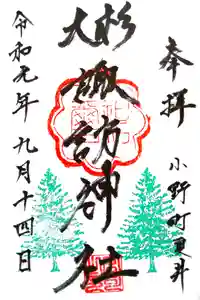 奉拝
小野町夏井
大杉
諏訪神社
令和元年九月十四日